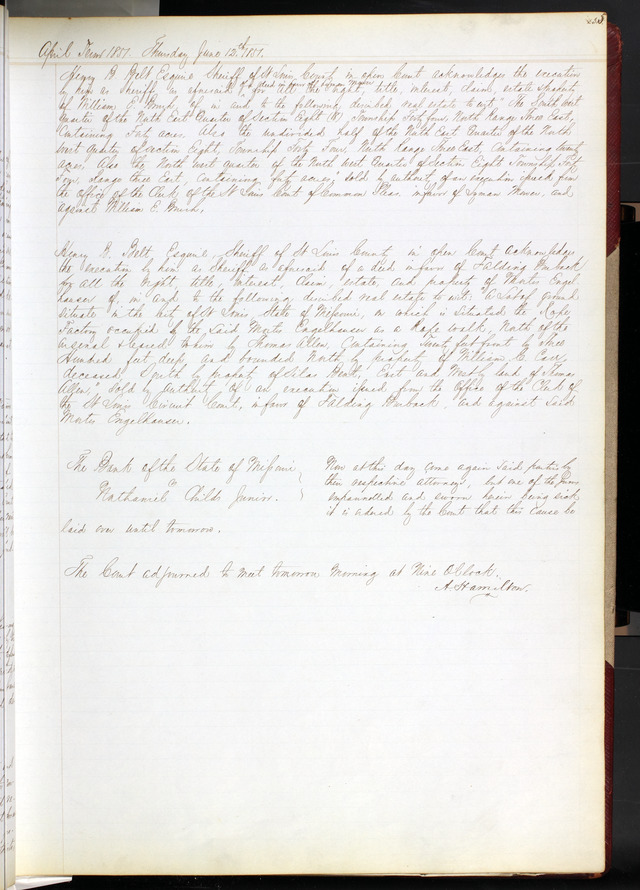 April Term 1851. Thursday June 12th 1851.
Henry B. Belt Esquire Sheriff of St Louis County in open Court acknowledges the execution
by him as Sheriff as aforesaid of a deed in favor of Lyman Mower for all the right, title, interest, claim, estate & property
of William E. Burch of in and to the following described real estate to wit: "The South West
Quarter of the North East Quarter of Section Eight (8) Township Forty four, North Range Three East,
Containing Forty acres, Also the undivided half of the North East Quarter of the North
West Quarter of Section Eight, Township Forty Four, North Range Three East, Containing twenty
acres, Also the North West Quarter of the North West Quarter of Section Eight Township Forty
Four, Range three East, Containing forty acres," sold by authority of an execution issued from
the office of the Clerk of the St Louis Court of Common Pleas, in favor of Lyman Mower, and
against William E. Burch.
Henry B. Belt, Esquire, Sheriff of St Louis County in open Court acknowledges
the execution by him as Sheriff as aforesaid of a deed in favor of
for all the right, title, interest, claim, estate, and property of Moritz Engel-
hauser of in and to the following described real estate to wit: "A Lot of ground
situate in the City of St Louis, State of Missouri, on which is situated the Rope
Factory occupied by the said Moritz Engelhauser as a Rope walk, North of the
Arsenal & leased to him by Thomas Allen, Containing Twenty feet front by Three
Hundred feet deep and bounded North by property of William C. Carr,
deceased, South by property of Silas East and West by land of Thomas
Allen," Sold by authority of an execution issued from the Office of the Clerk of
the St Louis Circuit Court, in favor of and against said
Moritz Engelhauser.
The Bank of the State of Missouri
vs
Nathaniel Childs Junior.
Now at this day come again said parties by
their respective attorneys, but one of the Jurors
empannelled and sworn herein being sick
it is ordered by the Court that this cause be
laid over until tomorrow.
The Court adjourned to meet tomorrow morning at Nine OClock.
A. Hamilton.